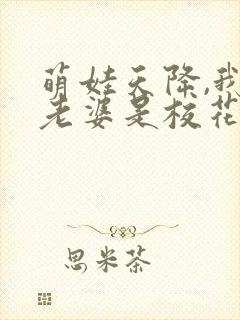 萌娃天降,我
老婆是校花
思米茶